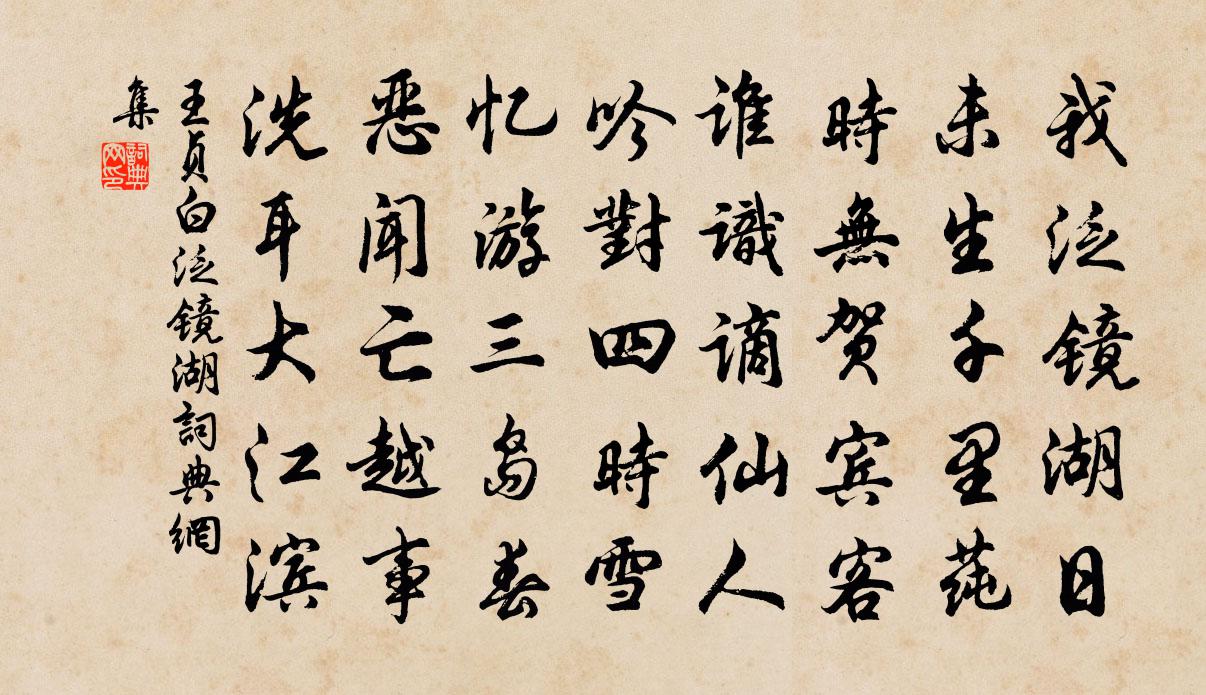 我泛镜湖日
未生千里莼
時無贺宾客
谁識谪仙人
吟對四時雪
忆游三岛春
恶闻亡越事
洗耳大江滨
王贞白泛镜湖詞典網
集
詞典
网印